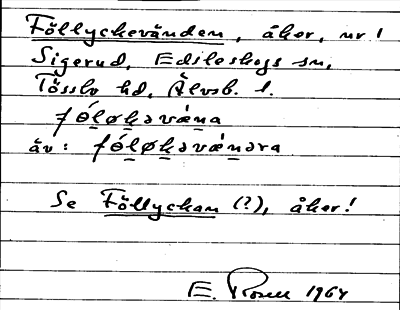 Föllyckevänden, åker, nr 1
Sigerud, Edsleskogs sn,
Tössbo hd, Älvsb. l.
fó̱lø̱kəvǽṉa
äv: fó̱lø̱kəvǽṉəra
Se Föllyckan (?), åker!
E. Rosell 1964